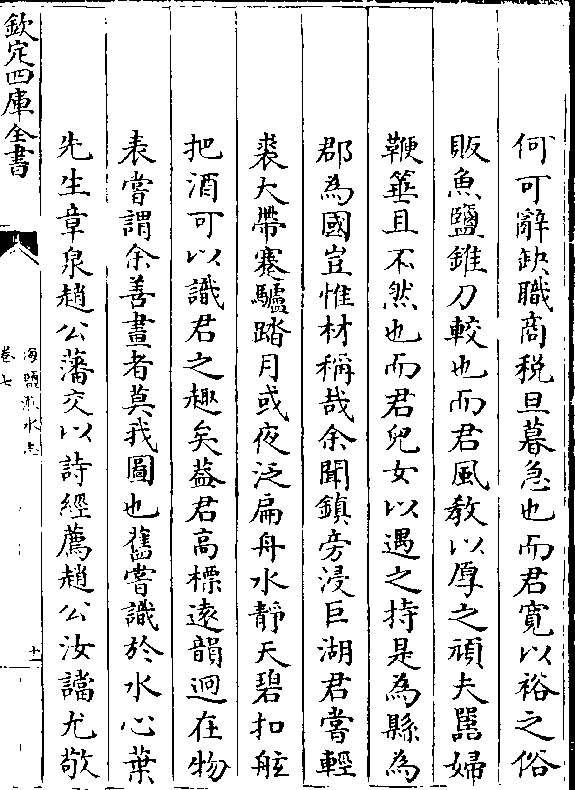 何可辭缺職商税旦暮急也而君寛以裕之俗
販魚鹽錐刀較也而君風教以厚之頑夫嚚婦
鞭箠且不然也而君兒女以遇之持是為縣為
郡為國豈惟材稱哉余聞鎮旁浸巨湖君嘗輕
裘大帶蹇驢踏月或夜泛扁舟水靜天碧扣舷
把酒可以識君之趣矣葢君高標逺韻迥在物
表嘗謂余善畫者莫我圖也舊嘗識於水心葉
先生章泉趙公蕃交以詩經薦趙公汝讜尤敬
欽定四庫全書
海鹽澉水志
卷七
十一